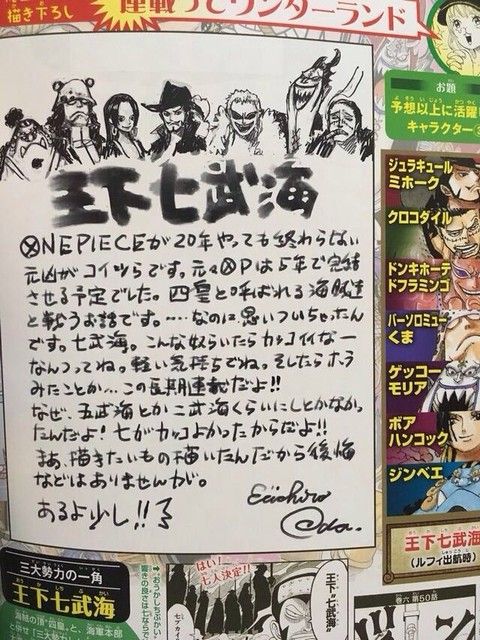 描き下ろし
連載ってワンダーランド
王下七武海
ⓍNEPIECEが20年やっても終わらない
元凶がコイツらです。元々ⓍPは5年で完結
させる予定でした。四皇と呼ばれる海賊達
と戦うお話です。……なのに思いついちゃったん
です。七武海。こんな奴らいたらカッコイイなー
なんつってね。軽い気持ちでね。そしたらホラ
みたことか…この長期連載だよ!!
なぜ、五武海とか二武海くらいにしとかなかっ
たんだよ!七がカッコよかったからだよ!!
まあ、描きたいもの描いたんだから後悔
などはありませんが。
あるよ少し!!
Eiichiro
Oda.
お題
予想以上に活躍
よそういじょうかつやく
キャラクター
ジュラキュール
ミホーク
クロコダイル
ドンキホーテ
ドフラミンゴ
バーソロミュー
くま
ゲッコー
モリア
ボア
ハンコック
ジンベエ
王下七武海
(ルフィ出航時)
三大勢力の一角
王下七武海
おうかしちぶかい
海賊の頂“四皇”と、海軍本部
「おうかしちぶかい」
響きの良さは七ならで
はい!
七人決定!!
王下七武海
巻六 第50話